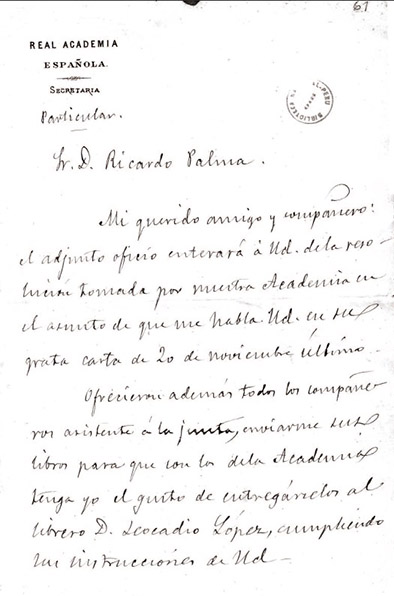 61
REAL ACADEMIA
ESPAÑOLA.
SECRETARIA
Particular.
Sr. D. Ricardo Palma.
Mi querido amigo y compañero:
el adjunto oficio enterará á Ud. de la reso-
lución tomada por nuestra Academia en
el asunto de que me habla Ud. en su
grata carta de 20 de noviembre último.
Ofrecieron además todos los compañe-
ros asistente á la junta, enviarme sus
libros para que con los dela Academia
tenga yo el gusto de entregárselos al
librero D. Leocadio López, cumpliendo
las instrucciones de Ud-